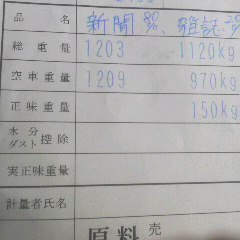 品名 新聞 雑誌
総重量 1203 1120kg
空車重量 1209 970kg
正味重量 150kg
水分 ダスト 控除
実正味重量
計量者氏名
原料 売